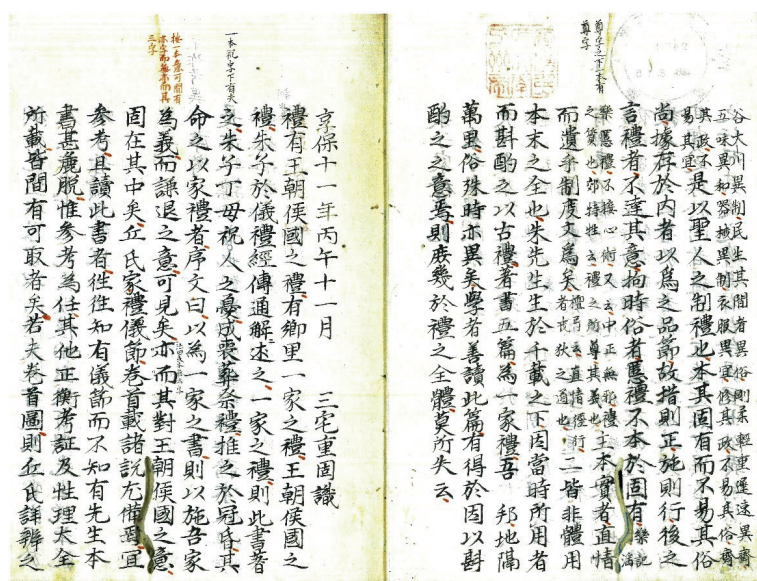 尊字之下一本有
尊字
谷大川異制民生其間者異俗剛柔輕重遲速異齊
五味異和器械異制衣服異宜修其教不易其俗齊
其政不
易其宜
是以聖人之制禮也本其固有而不易其俗
尚據存於内者以爲之品節故措則正施則行後之
言禮者不達其意拘時俗者慝禮不本於固有
樂記
樂慝禮不接心術又云中正無邪禮
之質也郊特牲云禮之所尊其義也
主本實者直情
而遺乎制度文爲矣
檀弓云直情徑行
者戎狄之道也
二皆非體用
本末之全也朱先生生於千載之下因當時所用者
而斟酌之以古禮著書五篇為家禮吾 邦地隔
萬里俗殊時亦異矣學者善讀此篇有得於因以斟
酌之之意焉則庶幾於禮之全體莫所失云
享保十一年丙午十一月 三宅重固識
禮有王朝侯國之禮有鄉里一家之禮王朝侯國之
禮朱子於儀禮經傳通解述之一家之禮則此書著
一本祝字下有夫
之朱子丁母祝人之憂成喪葬祭禮推之於冠昏其
命之以家禮者序文曰以為一家之書則以施吾家
按一本意可間有
亦字而無而其
三字
為義而謙退之意可見矣亦而其對王朝侯國之意
固在其中矣丘氏家禮儀節卷首載諸説尤備焉宜
參考且讀此書者徃徃知有儀節而不知有先生本
書甚麁脱惟參考為任其他正衡考証及性理大全
所載皆間有可取者矣若夫卷首圖則丘氏詳辨之